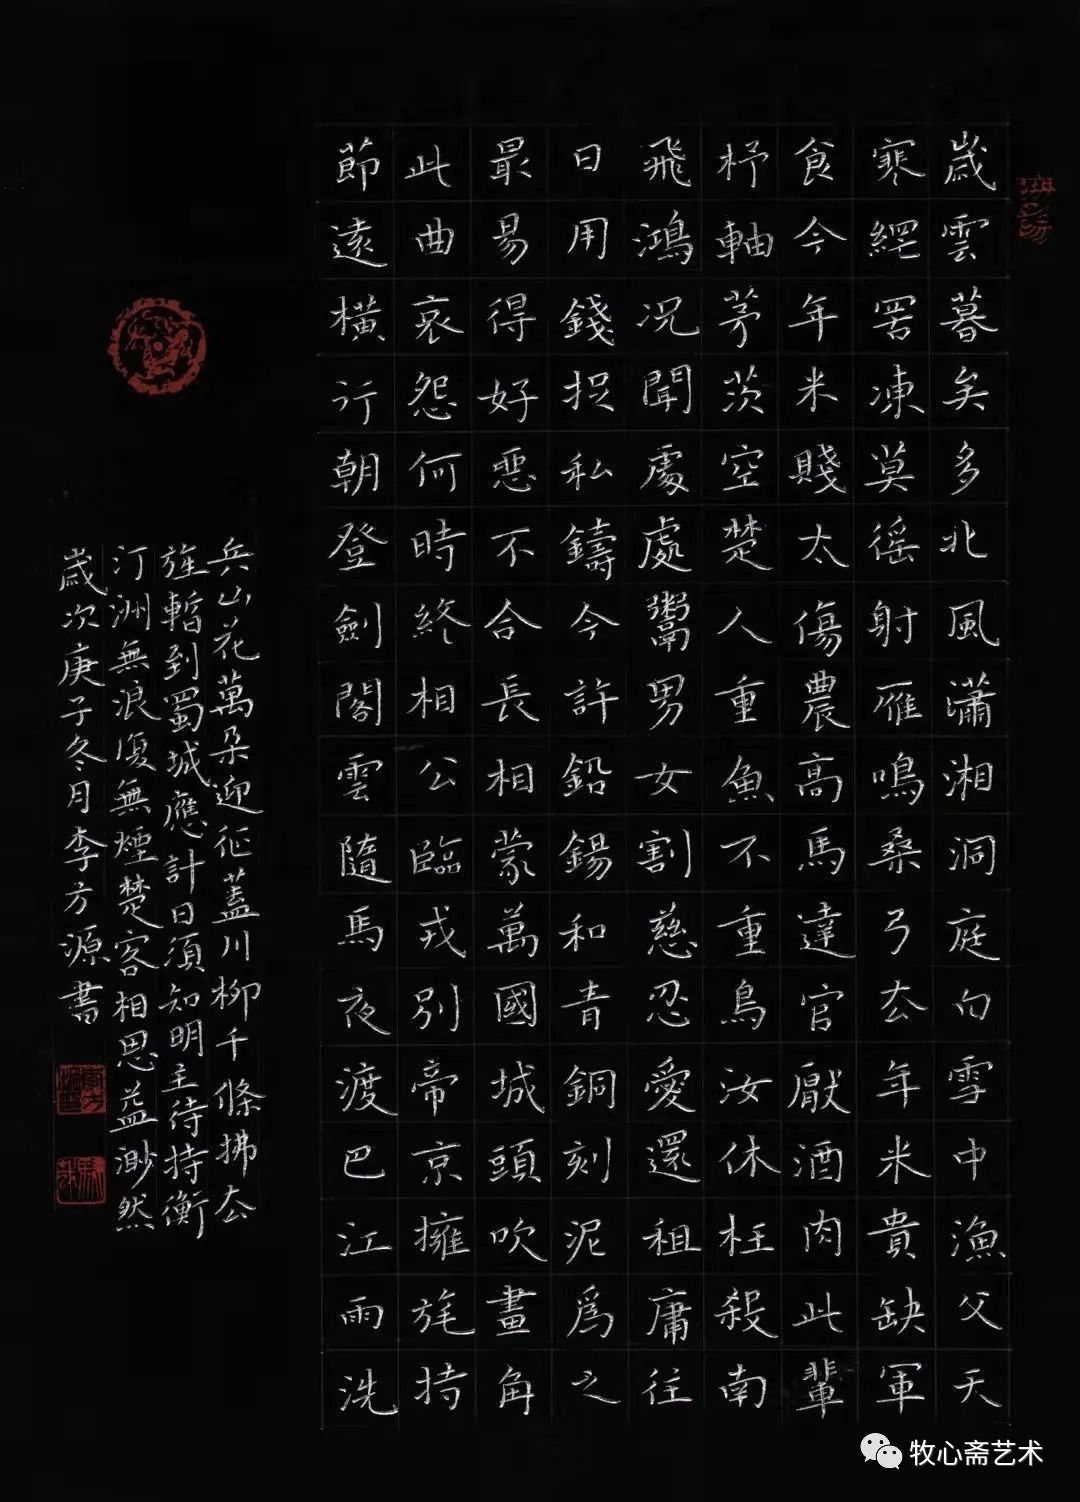 歲雲暮矣多北風瀟湘洞庭白雪中漁父天
寒網罟凍莫徭射雁鳴桑弓去年米貴缺軍
食今年米賤太傷農高馬達官厭酒肉此輩
杼軸茅茨空楚人重魚不重鳥汝休枉殺南
飛鴻況聞處處鬻男女割慈忍愛還租庸往
日用錢捉私鑄今許鉛錫和青銅刻泥爲之
最易得好惡不合長相蒙萬國城頭吹畫角
此曲哀怨何時終相公臨戎別帝京擁旄持
節遠橫行朝登劍閣雲隨馬夜渡巴江雨洗
兵山花萬朵迎征蓋川柳千條拂去
旌暫到蜀城應計日須知明主待持衡
汀洲無浪復無煙楚客相思益渺然
歲次庚子冬月李方源書
牧心斋艺术